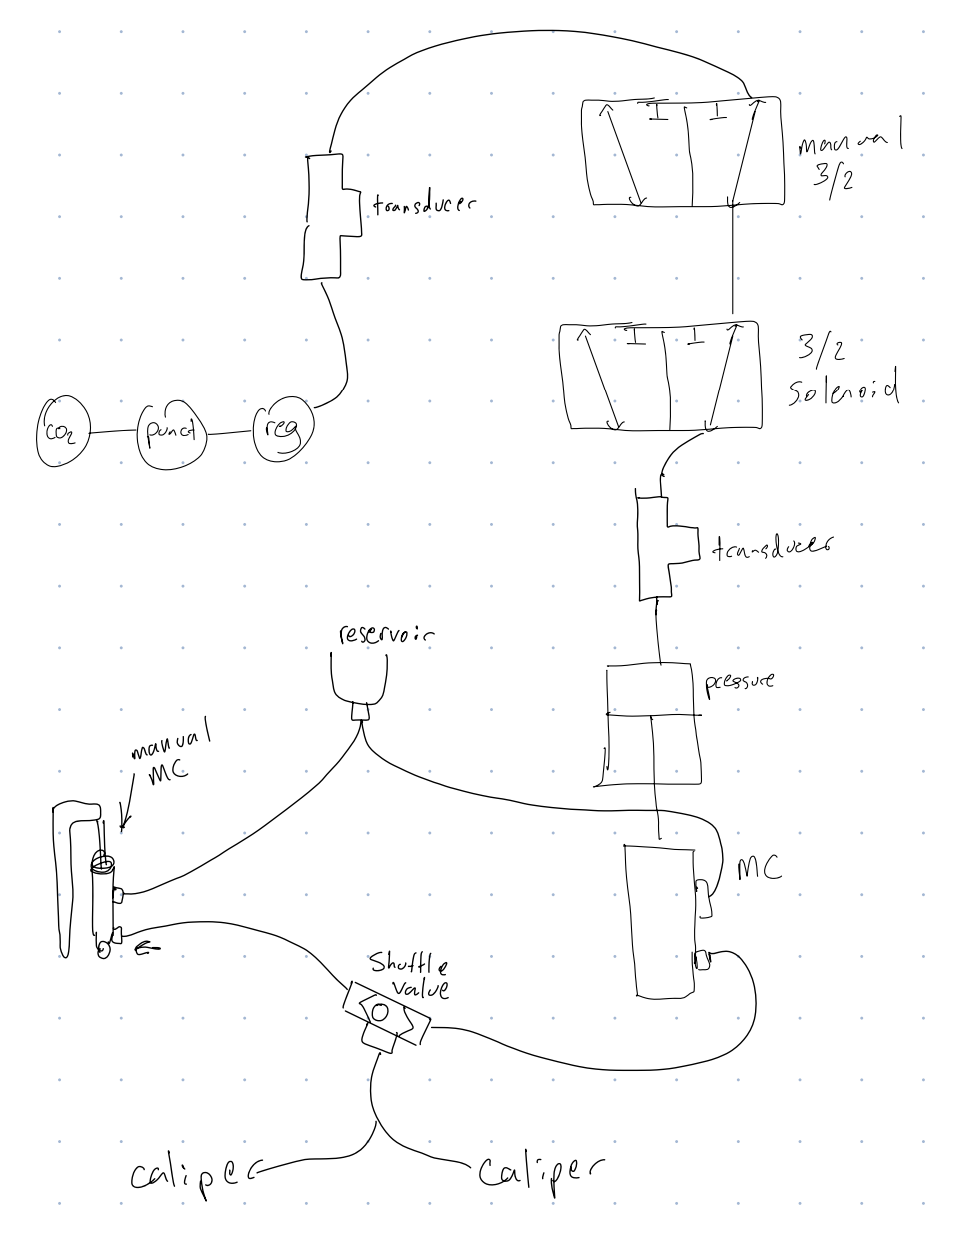 manual
3/2
transducer
3/2
solenoid
CO2
punct
reg
transducer
reservoir
pressure
manual
MC
MC
Shuttle
value
caliper
caliper